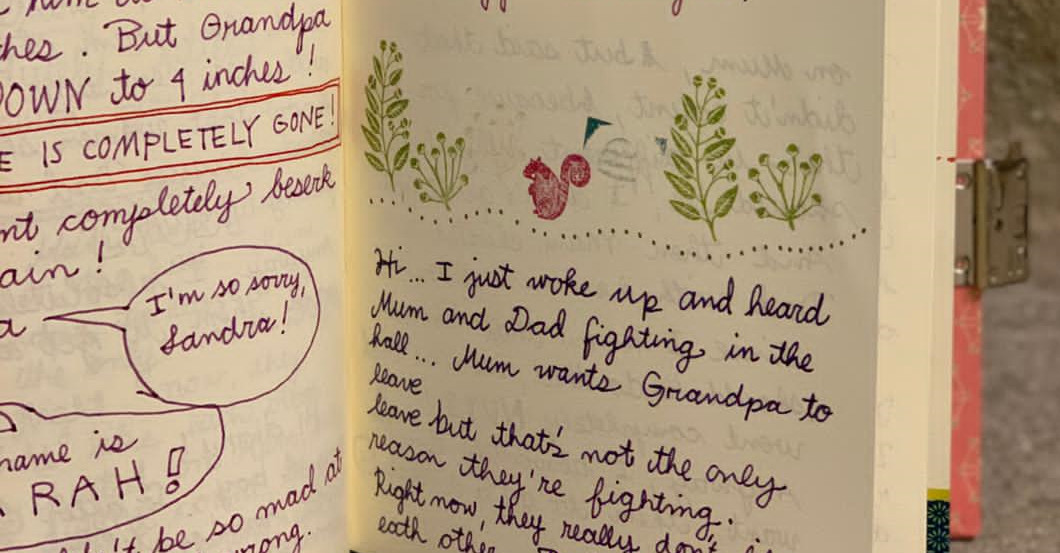 ches. But Grandpa
DOWN to 4 inches!
IS COMPLETELY GONE!
completely beserk
I'm so sorry,
Sandra!
name is
RAH!
be so mad at
Hi... I just woke up and heard
Mum and Dad fighting in the
hall... Mum wants Grandpa to
leave
leave but that's not the only
reason they're fighting.
Right now, they really don't
eath other